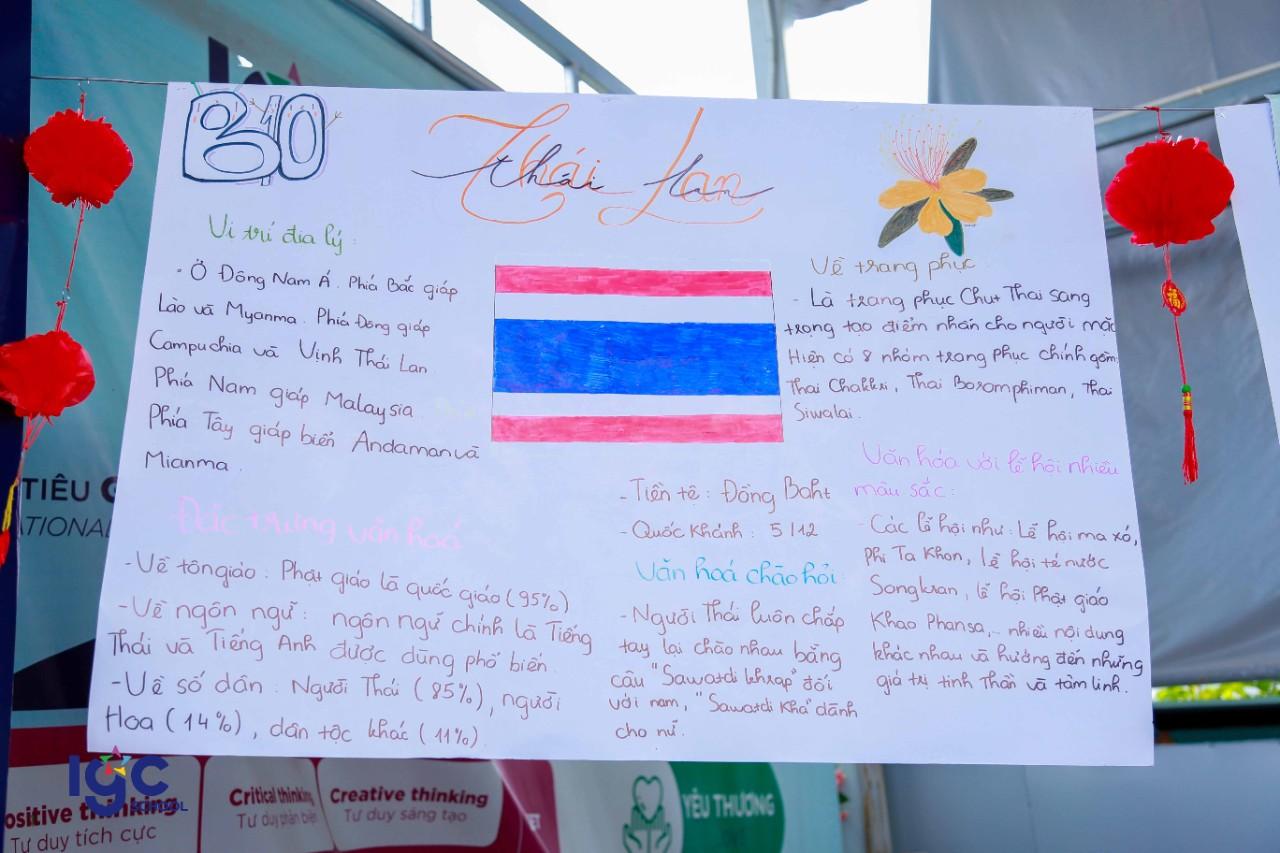 B10
Thái Lan
thái lan
Vi trí địa lý :
- Ở Đông Nam Á. Phía Bắc giáp
Lào và Myanma. Phía Đông giáp
Campuchia và Vịnh Thái Lan
Phía Nam giáp Malaysia
Phía Tây giáp biển Andaman và
Mianma.
Đặc trưng văn hoá
- Về tôn giáo : Phật giáo là quốc giáo (95%)
- Về ngôn ngữ : ngôn ngữ chính là Tiếng
Thái và Tiếng Anh được dùng phổ biến.
- Về số dân : Người Thái (85%), người
Hoa (14%), dân tộc khác (11%)
- Tiền tệ : Đồng Baht
- Quốc Khánh : 5/12
Văn hoá chào hỏi
- Người Thái luôn chắp
tay lại chào nhau bằng
câu "Sawatdi khrap" đối
với nam, "Sawatdi Kha" dành
cho nữ.
Về trang phục
- Là trang phục Chut Thai sang
trọng tạo điểm nhấn cho người mặc
Hiện có 8 nhóm trang phục chính gồm:
Thai Chakkri, Thai Boromphiman, Thai
Siwalai.
Văn hóa với lễ hội nhiều
màu sắc :
- Các lễ hội như : Lễ hội ma xó,
Phi Ta Khon, lễ hội té nước
Songkran, lễ hội Phật giáo
Khao Phansa,... nhiều nội dung
khác nhau và hướng đến những
giá trị tinh thần và tâm linh.
TIÊU
IGC
SCHOOL
positive thinking
Tư duy tích cực
Critical thinking
Tư duy phản biện
Creative thinking
Tư duy sáng tạo
YÊU THƯƠNG